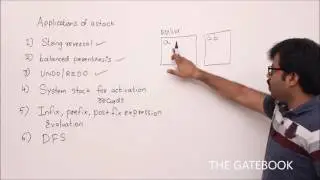 Applications of a stack
1) String reversal ✓
2) balanced parenthesis ✓
3) UNDO/REDO ✓
4) System stack for activation
records
5) Infix, prefix, postfix expression
Evaluation
6) DFS
a
THE GATEBOOK